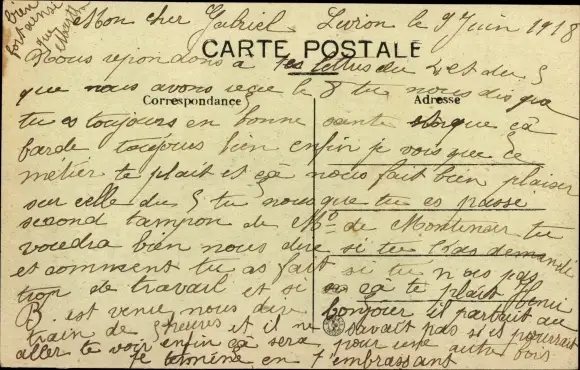 bien
portainsi
que
Mon cher Gabriel Livron le 9 Juin 1918
CARTE POSTALE
Nous repondons a tes lettres du 2 et du 5
que nous avons reçue le 8 tu nous dis que
Correspondance
Adresse
tu es toujours en bonne sante que ça
barde toujours bien enfin je vois que ce
métier te plait et ça nous fait bien plaisir
sur celle du 5 tu nous que tu es passé
second tampon de de tu
voudra bien nous dire si tu l'as demandé
et comment tu as fait si tu n'es pas
trop de travail et si ça te plait Henri
B. est venu nous dire bonjour il partait au
train de 5 heures et il ne savait pas si il pourrait
aller te voir enfin ça sera pour une autre fois
Je termine en t'embrassant